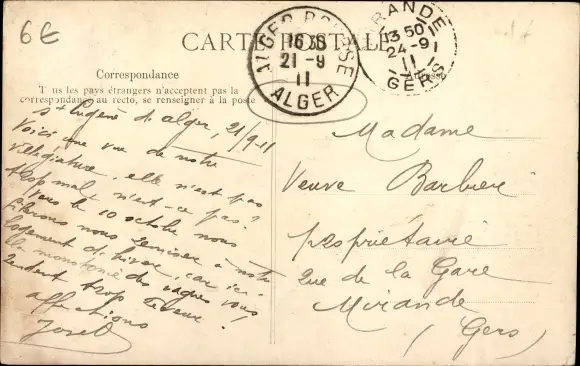 6€
CARTE POSTALE
Correspondance
Tous les pays étrangers n'acceptent pas la
correspondance au recto, se renseigner à la poste
Adresse
ALGER BOURSE
16 30
21 - 9
11
ALGER
MIRANDE
13 50
24 - 9
11
GERS
St Eugène d'alger, 21/9-11
Voici une vue de notre
villégiature, elle n'est pas
trop mal n'est-ce pas?
Vers le 10 octobre nous
irons nous remiser à notre
logement d'hiver, car ici
la monotonie des vagues vous
rendent trop rêveur!
affections
Josel
Madame
Veuve Barbère
propriétaire
Rue de la Gare
Mirande
(Gers)